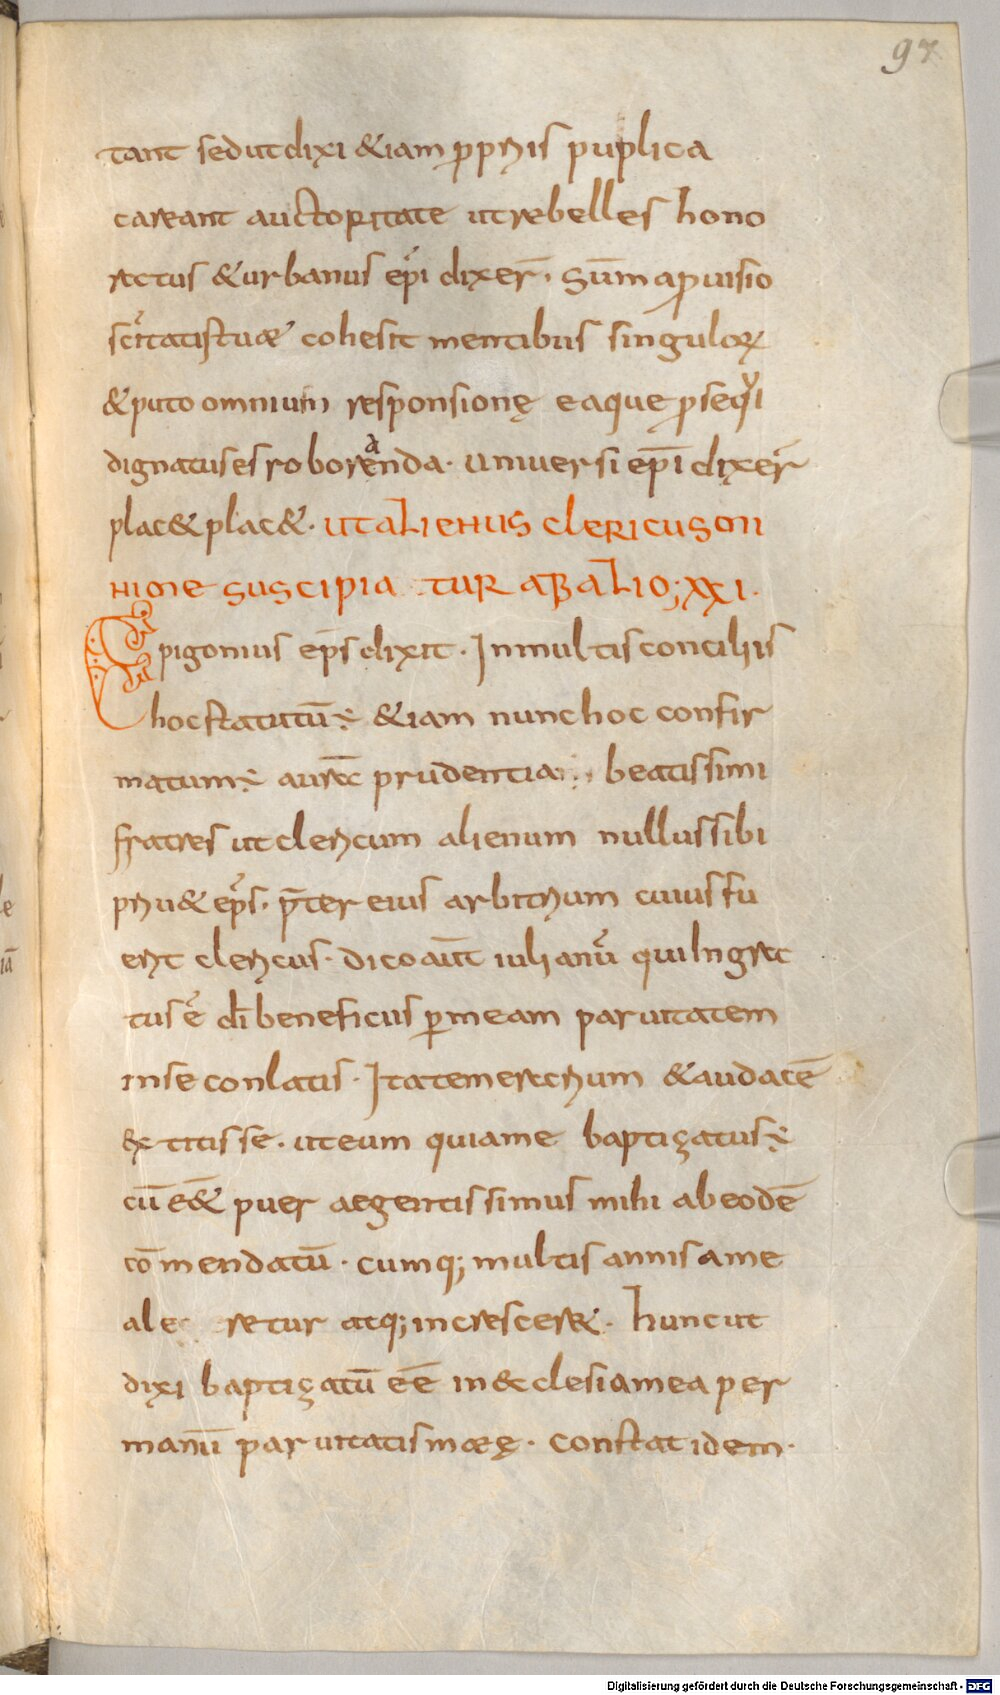 97
tant sed ut dixi &iam ꝓpriis puplica
careant auctoritate ut rebelles hono
ratus & urbanus ep̄i dixer̄. Sum̄a ꝓuisio
sc̄itatis tuae cohesit mentibus singuloꝝ
& puto omnium responsionę eaque ꝓsequi
dignatus es roboranda. uniuersi ep̄i dixer̄
plac& plac&. UT ALIENUS CLERICUS OM
NIONE SUSCIPIATUR AB ALIO; XXI.
Epigonius ep̄s dixit. In multis conciliis
hoc statutū ę̄ &iam nunc hoc confir
matum ę̄ a ur̄ec prudentia beatissimi
fratres ut clericum alienum nullus sibi
priu& ep̄s. p̄ter eius arbitrium cuius fu
erit clericus. dico aūt iulianū qui Ingrac
tus ē dī beneficus ꝑ meam paruitatem
in se conlatis. Ita temerarium & audacē
extitisse. ut eum qui a me baptizatus ę̄
cū e̅& puer aegentissimus mihi ab eodē
cōmendatū. cumq; multis annis a me
aleretur atq; increscer&. hunc ut
dixi baptizatū eē in ecclesia mea per
manū paruitatis maeę. constat idem.
Digitalisierung gefördert durch die Deutsche Forschungsgemeinschaft - DFG